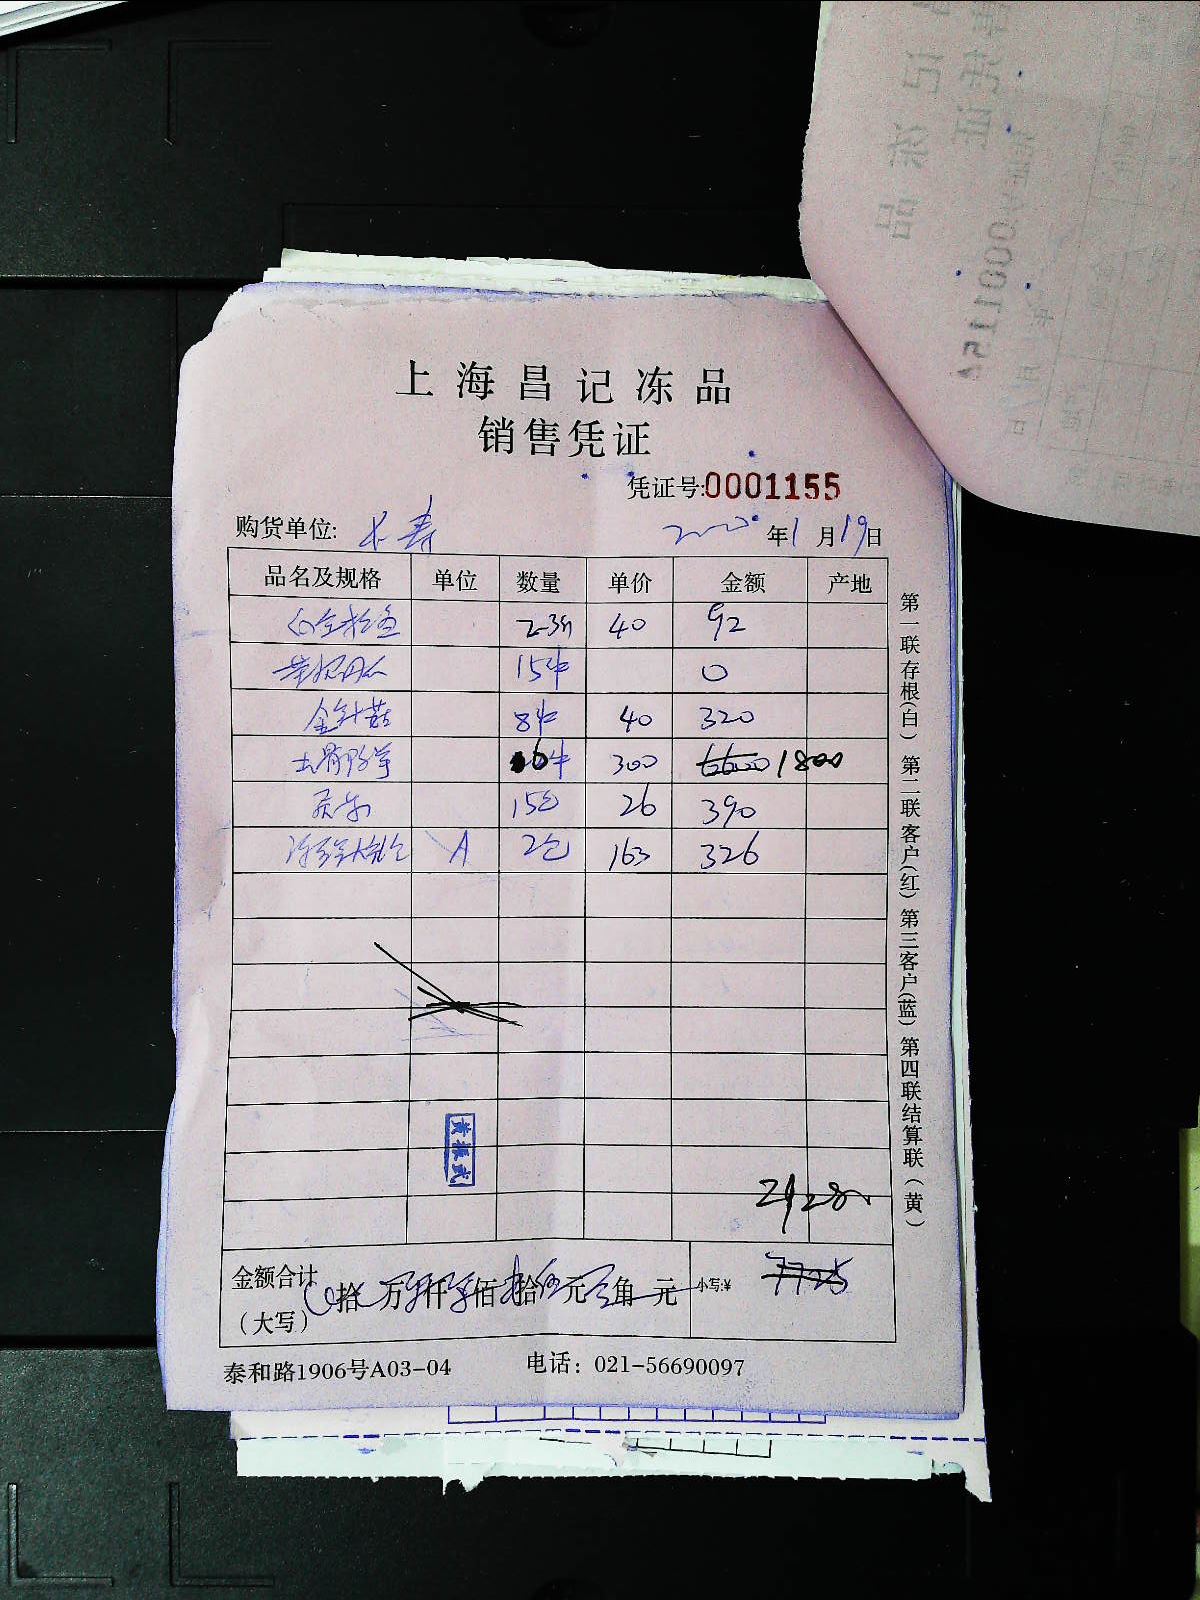 上海昌记冻品
销售凭证
凭证号:0001155
购货单位: 长寿 年1月19日
品名及规格 单位 数量 单价 金额 产地
40 92
15件 0
金针菇 8件 40 320
6件 300 6600 1800
15包 26 390
A 2包 163 326
2928
金额合计 拾 万 仟 佰 拾 元 角 元 小写:¥ 7725
(大写)
泰和路1906号A03-04 电话: 021-56690097
第一联存根(白) 第二联客户(红) 第三客户(蓝) 第四联结算联(黄)
0001154